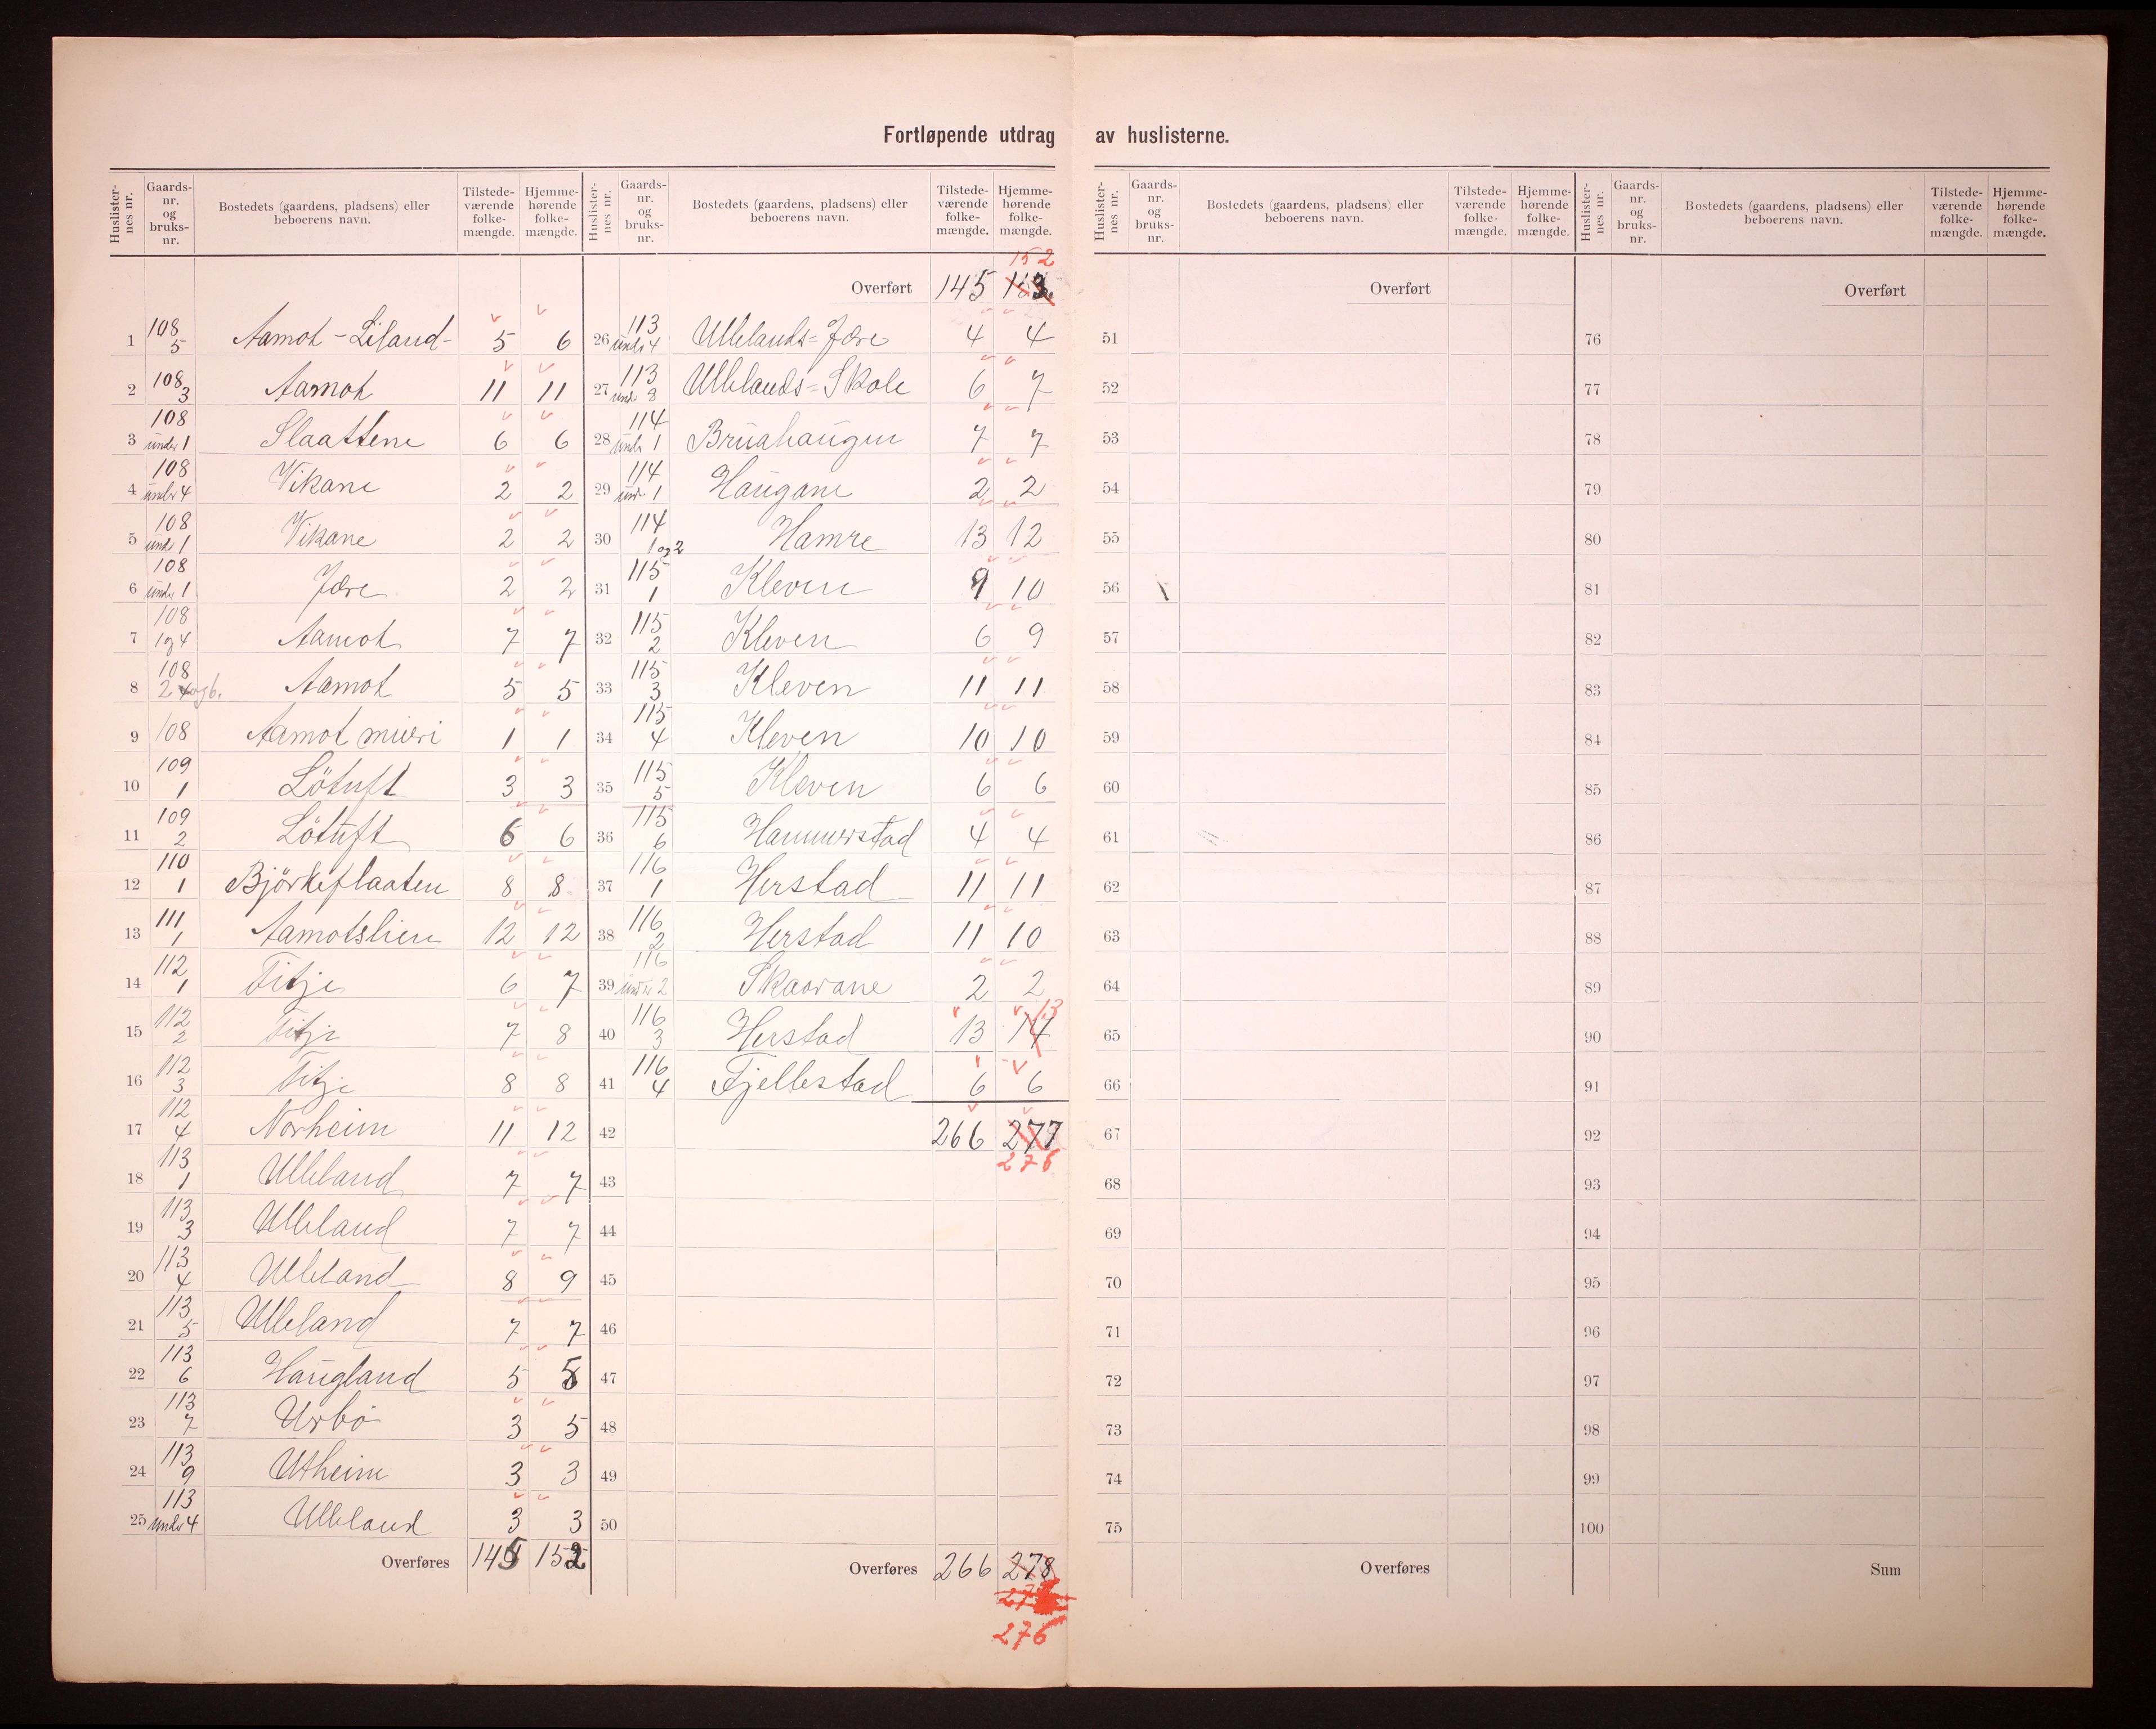 Fortløpende utdrag av huslisterne.
Huslisternes nr. Gaards-nr. og bruks-nr. Bostedets (gaardens, pladsens) eller beboerens navn. Tilstedeværende folkemængde. Hjemmehørende folkemængde.
1 108 5 Aamot - Liland - 5 6
2 108 3 Aamot 11 11
3 108 under 1 Slaattene 6 6
4 108 under 4 Vikane 2 2
5 108 under 1 Vikane 2 2
6 108 under 1 Jære 2 2
7 108 1 og 4 Aamot 7 7
8 108 2 og 6. Aamot 5 5
9 108 Aamot 1 1
10 109 1 Løtuft 3 3
11 109 2 Løtuft 6 6
12 110 1 Björkeflaaten 8 8
13 111 1 Aamotslien 12 12
14 112 1 Titje 6 7
15 112 2 Titje 7 8
16 112 3 Titje 8 8
17 112 4 Norheim 11 12
18 113 1 Ulleland 7 7
19 113 3 Ulleland 7 7
20 113 4 Ulleland 8 9
21 113 5 Ulleland 7 7
22 113 6 Haugland 5 5
23 113 7 Urbø 3 5
24 113 9 Utheim 3 3
25 113 under 4 Ulleland 3 3
Overføres 145 152
Huslisternes nr. Gaards-nr. og bruks-nr. Bostedets (gaardens, pladsens) eller beboerens navn. Tilstedeværende folkemængde. Hjemmehørende folkemængde.
152
Overført 145
26 113 under 4 Ullelands=Jøre 4 4
27 113 under 8 Ullelands=Skole 6 7
28 114 under 1 Bruahaugen 7 7
29 114 und. 1 Haugane 2 2
30 114 1 og 2 Hamre 13 12
31 115 1 Kleven 9 10
32 115 2 Kleven 6 9
33 115 3 Kleven 11 11
34 115 4 Kleven 10 10
35 115 5 Kleven 6 6
36 115 6 Hammerstad 4 4
37 116 1 Herstad 11 11
38 116 2 Herstad 11 10
39 116 under 2 Skaarane 2 2
40 116 3 Herstad 13 14 13
41 116 4 Fjellestad 6 6
42 266 277
276
43
44
45
46
47
48
49
50
Overføres 266 278
276
Huslisternes nr. Gaards-nr. og bruks-nr. Bostedets (gaardens, pladsens) eller beboerens navn. Tilstedeværende folkemængde. Hjemmehørende folkemængde.
Overført
51
52
53
54
55
56
57
58
59
60
61
62
63
64
65
66
67
68
69
70
71
72
73
74
75
Overføres
Huslisternes nr. Gaards-nr. og bruks-nr. Bostedets (gaardens, pladsens) eller beboerens navn. Tilstedeværende folkemængde. Hjemmehørende folkemængde.
Overført
76
77
78
79
80
81
82
83
84
85
86
87
88
89
90
91
92
93
94
95
96
97
98
99
100
Sum